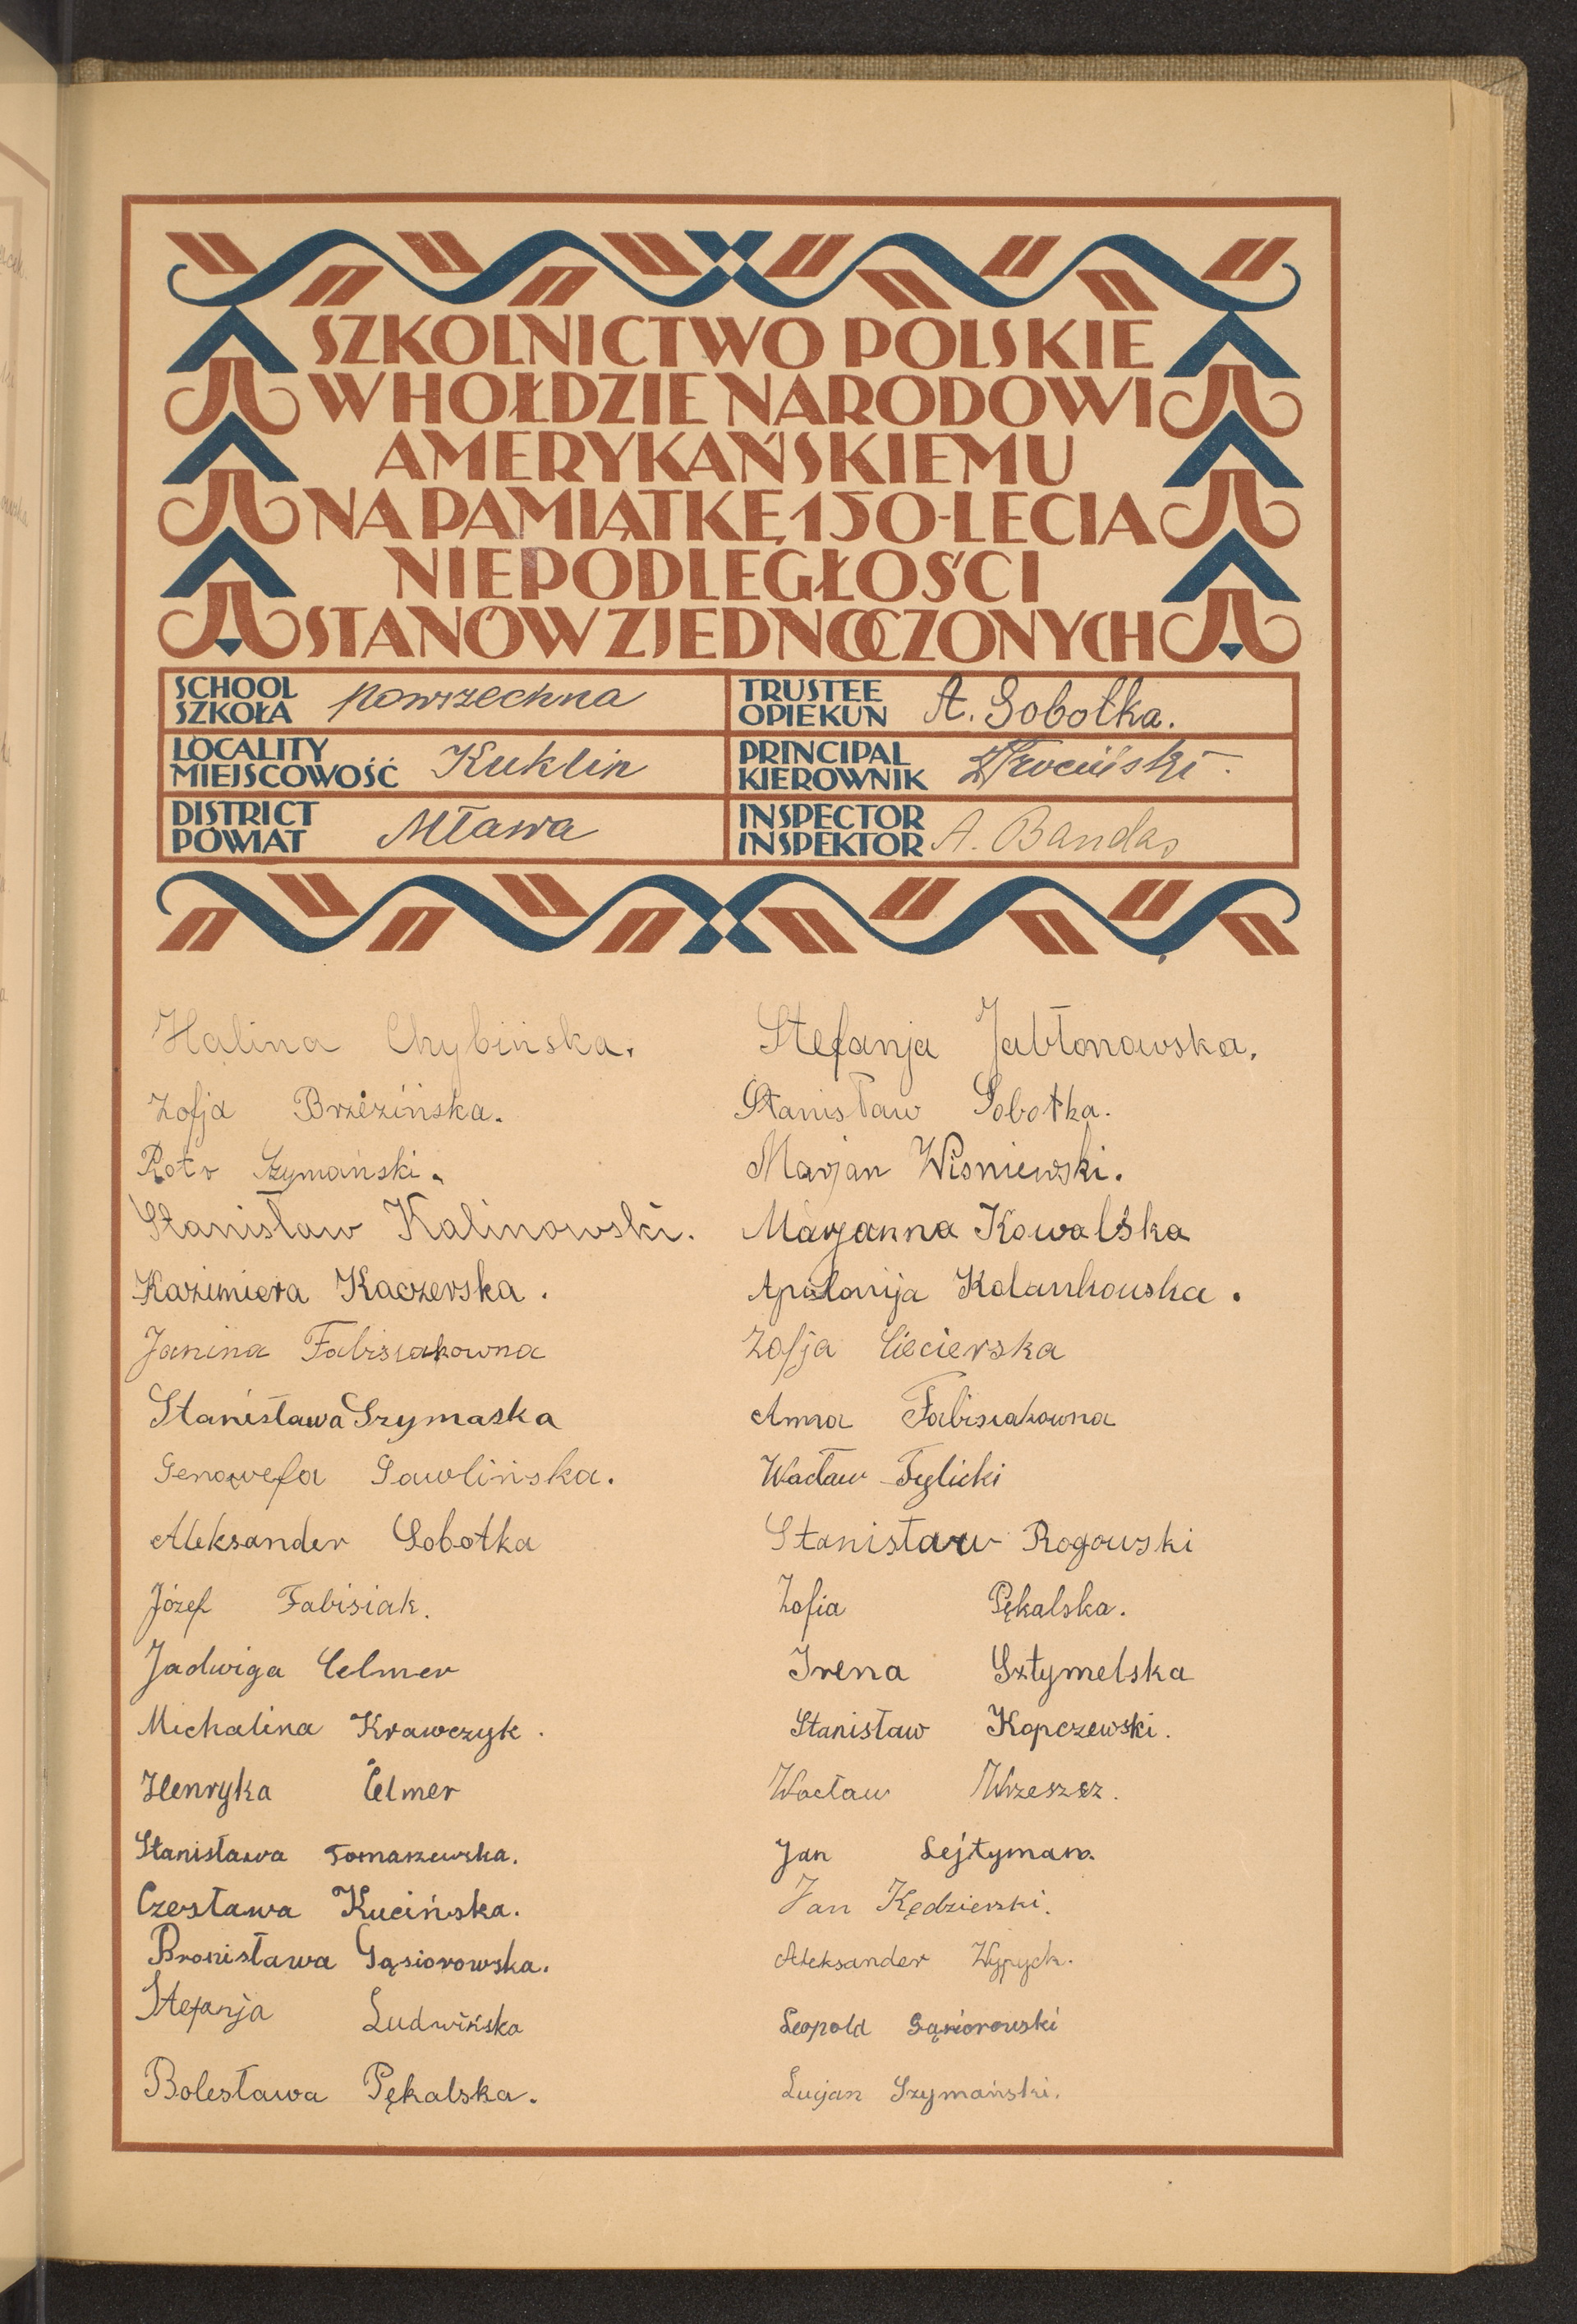 SZKOLNICTWO POLSKIE
W HOŁDZIE NARODOWI
AMERYKAŃSKIEMU
NA PAMIĄTKĘ 150-LECIA
NIEPODLEGŁOŚCI
STANÓW ZJEDNOCZONYCH
SCHOOL
SZKOŁA powszechna
LOCALITY
MIEJSCOWOŚĆ Kuklin
DISTRICT
POWIAT Mława
TRUSTEE
OPIEKUN A. Sobotka.
PRINCIPAL
KIEROWNIK
INSPECTOR
INSPEKTOR A. Bandas
Halina Chybińska.
Zofja Brzezińska.
Piotr Szymański.
Stanisław Kalinowski.
Kazimiera Kaczerska.
Janina Fabisiakowna
Stanisława Szymaska
Genowefa Gawlińska.
Aleksander Sobotka
Józef Fabisiak.
Jadwiga Celmer
Michalina Krawczyk.
Henryka Celmer
Stanisława Tomaszewska.
Czesława Kucińska.
Bronisława Gąsiorowska.
Stefanja Ludwińska
Bolesława Pękalska.
Stefanja Jabłonowska.
Stanisław Sobotka.
Marjan Wisniewski.
Marjanna Kowalska
Apolonija Kolankowska.
Zofja Ciecierska
Anna Fabisiakowna
Wacław Tylicki
Stanisław Rogowski
Zofia Pękalska.
Irena Sztymelska
Stanisław Kopczewski.
Wacław Wrzeszcz.
Jan Lejtyman.
Jan Kędzierski.
Aleksander Wypych.
Leopold Gąsiorowski
Lucjan Szymański.